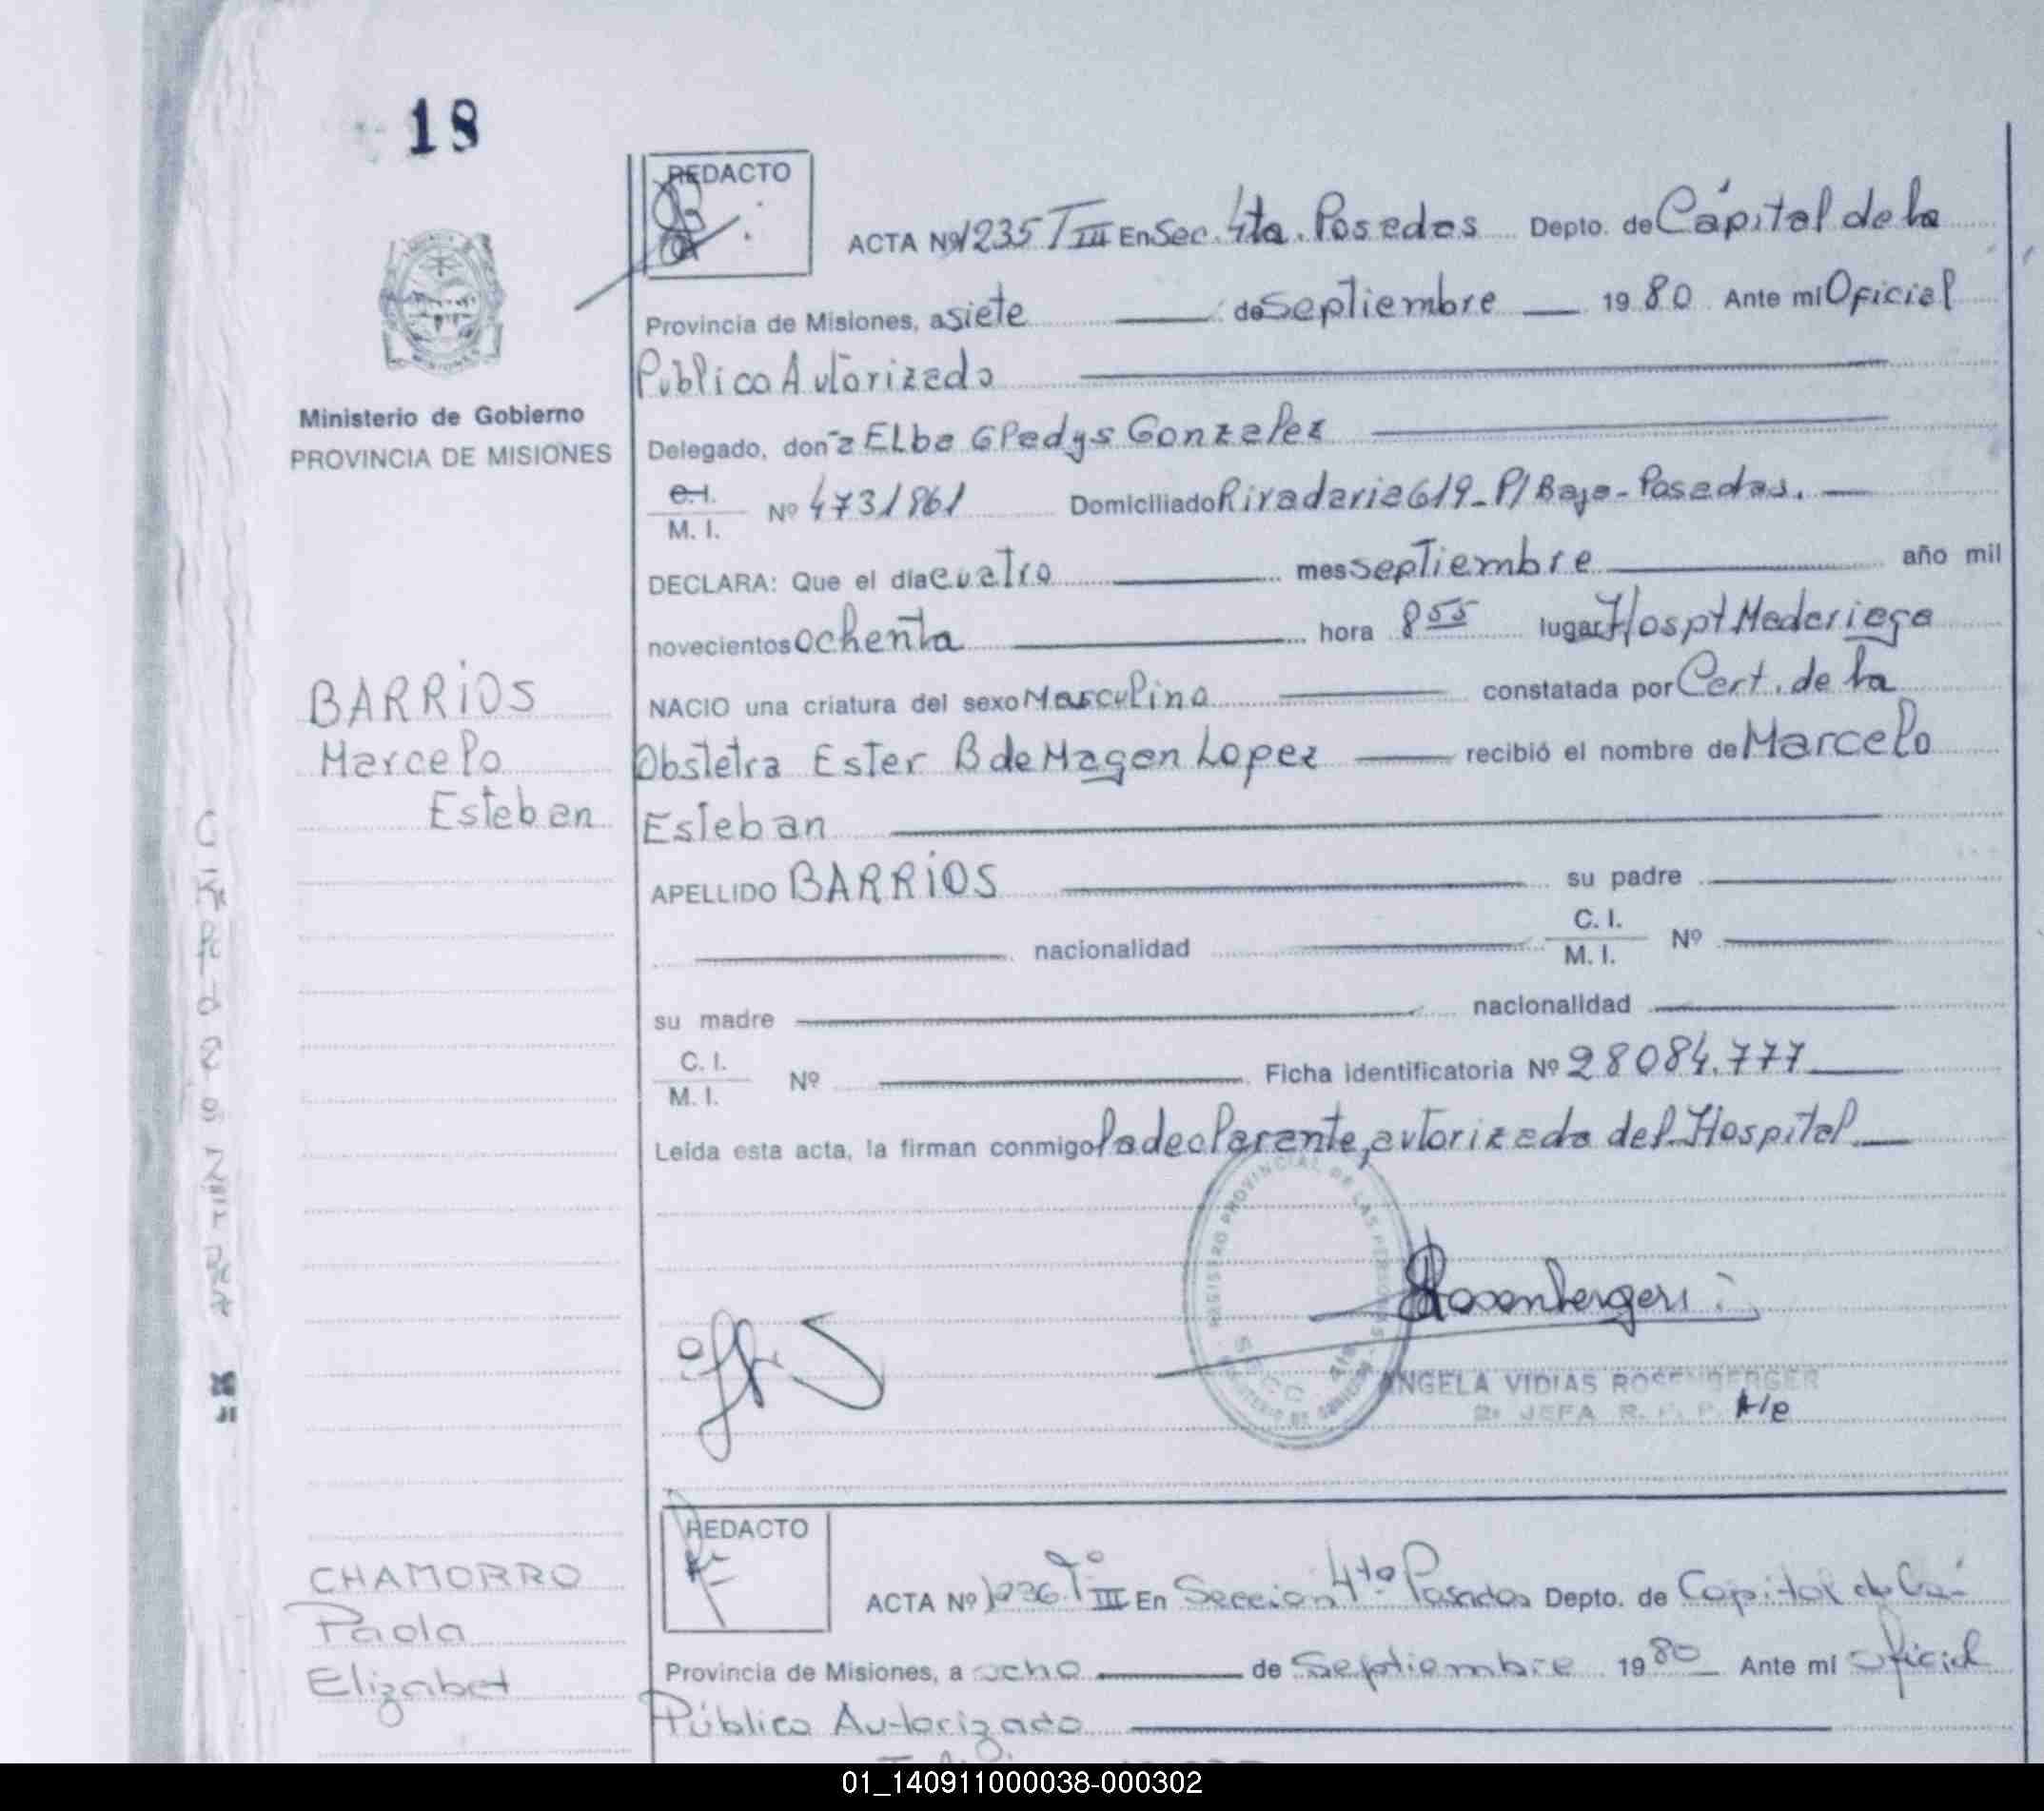 18
REDACTO
ACTA Nº 1235 T III En Sec. 4ta. Posadas Depto. de Capital de la
Provincia de Misiones, a siete de Septiembre 1980. Ante mi Oficial
Público Autorizado
Ministerio de Gobierno
PROVINCIA DE MISIONES
Delegado, don~a Elba Gladys Gonzalez
C.I.
M. I. Nº 4731861 Domiciliado Rivadavia 619 - P/ Baja - Posadas.
DECLARA: Que el día cuatro mes septiembre año mil
novecientos ochenta hora 8 55 lugar Hospt Madariaga
NACIO una criatura del sexo Masculino constatada por Cert. de la
Obstetra Ester B de Lopez recibió el nombre de Marcelo
Esteban
BARRIOS
Marcelo
Esteban
APELLIDO BARRIOS su padre
nacionalidad C. I.
M. I. Nº
su madre nacionalidad
C. I.
M. I. Nº Ficha identificatoria Nº 28084.777
Leída esta acta, la firman conmigo la declarante, autorizada del Hospital
REGISTRO PROVINCIAL DE LAS PERSONAS
Rosenberger
ANGELA VIDIAS ROSENBERGER
2ª JEFA R. P. P. A/e
REDACTO
CHAMORRO
Paola
Elizabet
ACTA Nº 1236 Tº III En Sección 4ta Posadas Depto. de Capital de la
Provincia de Misiones, a ocho de Septiembre 1980 Ante mi Oficial
Público Autorizado
01_140911000038-000302